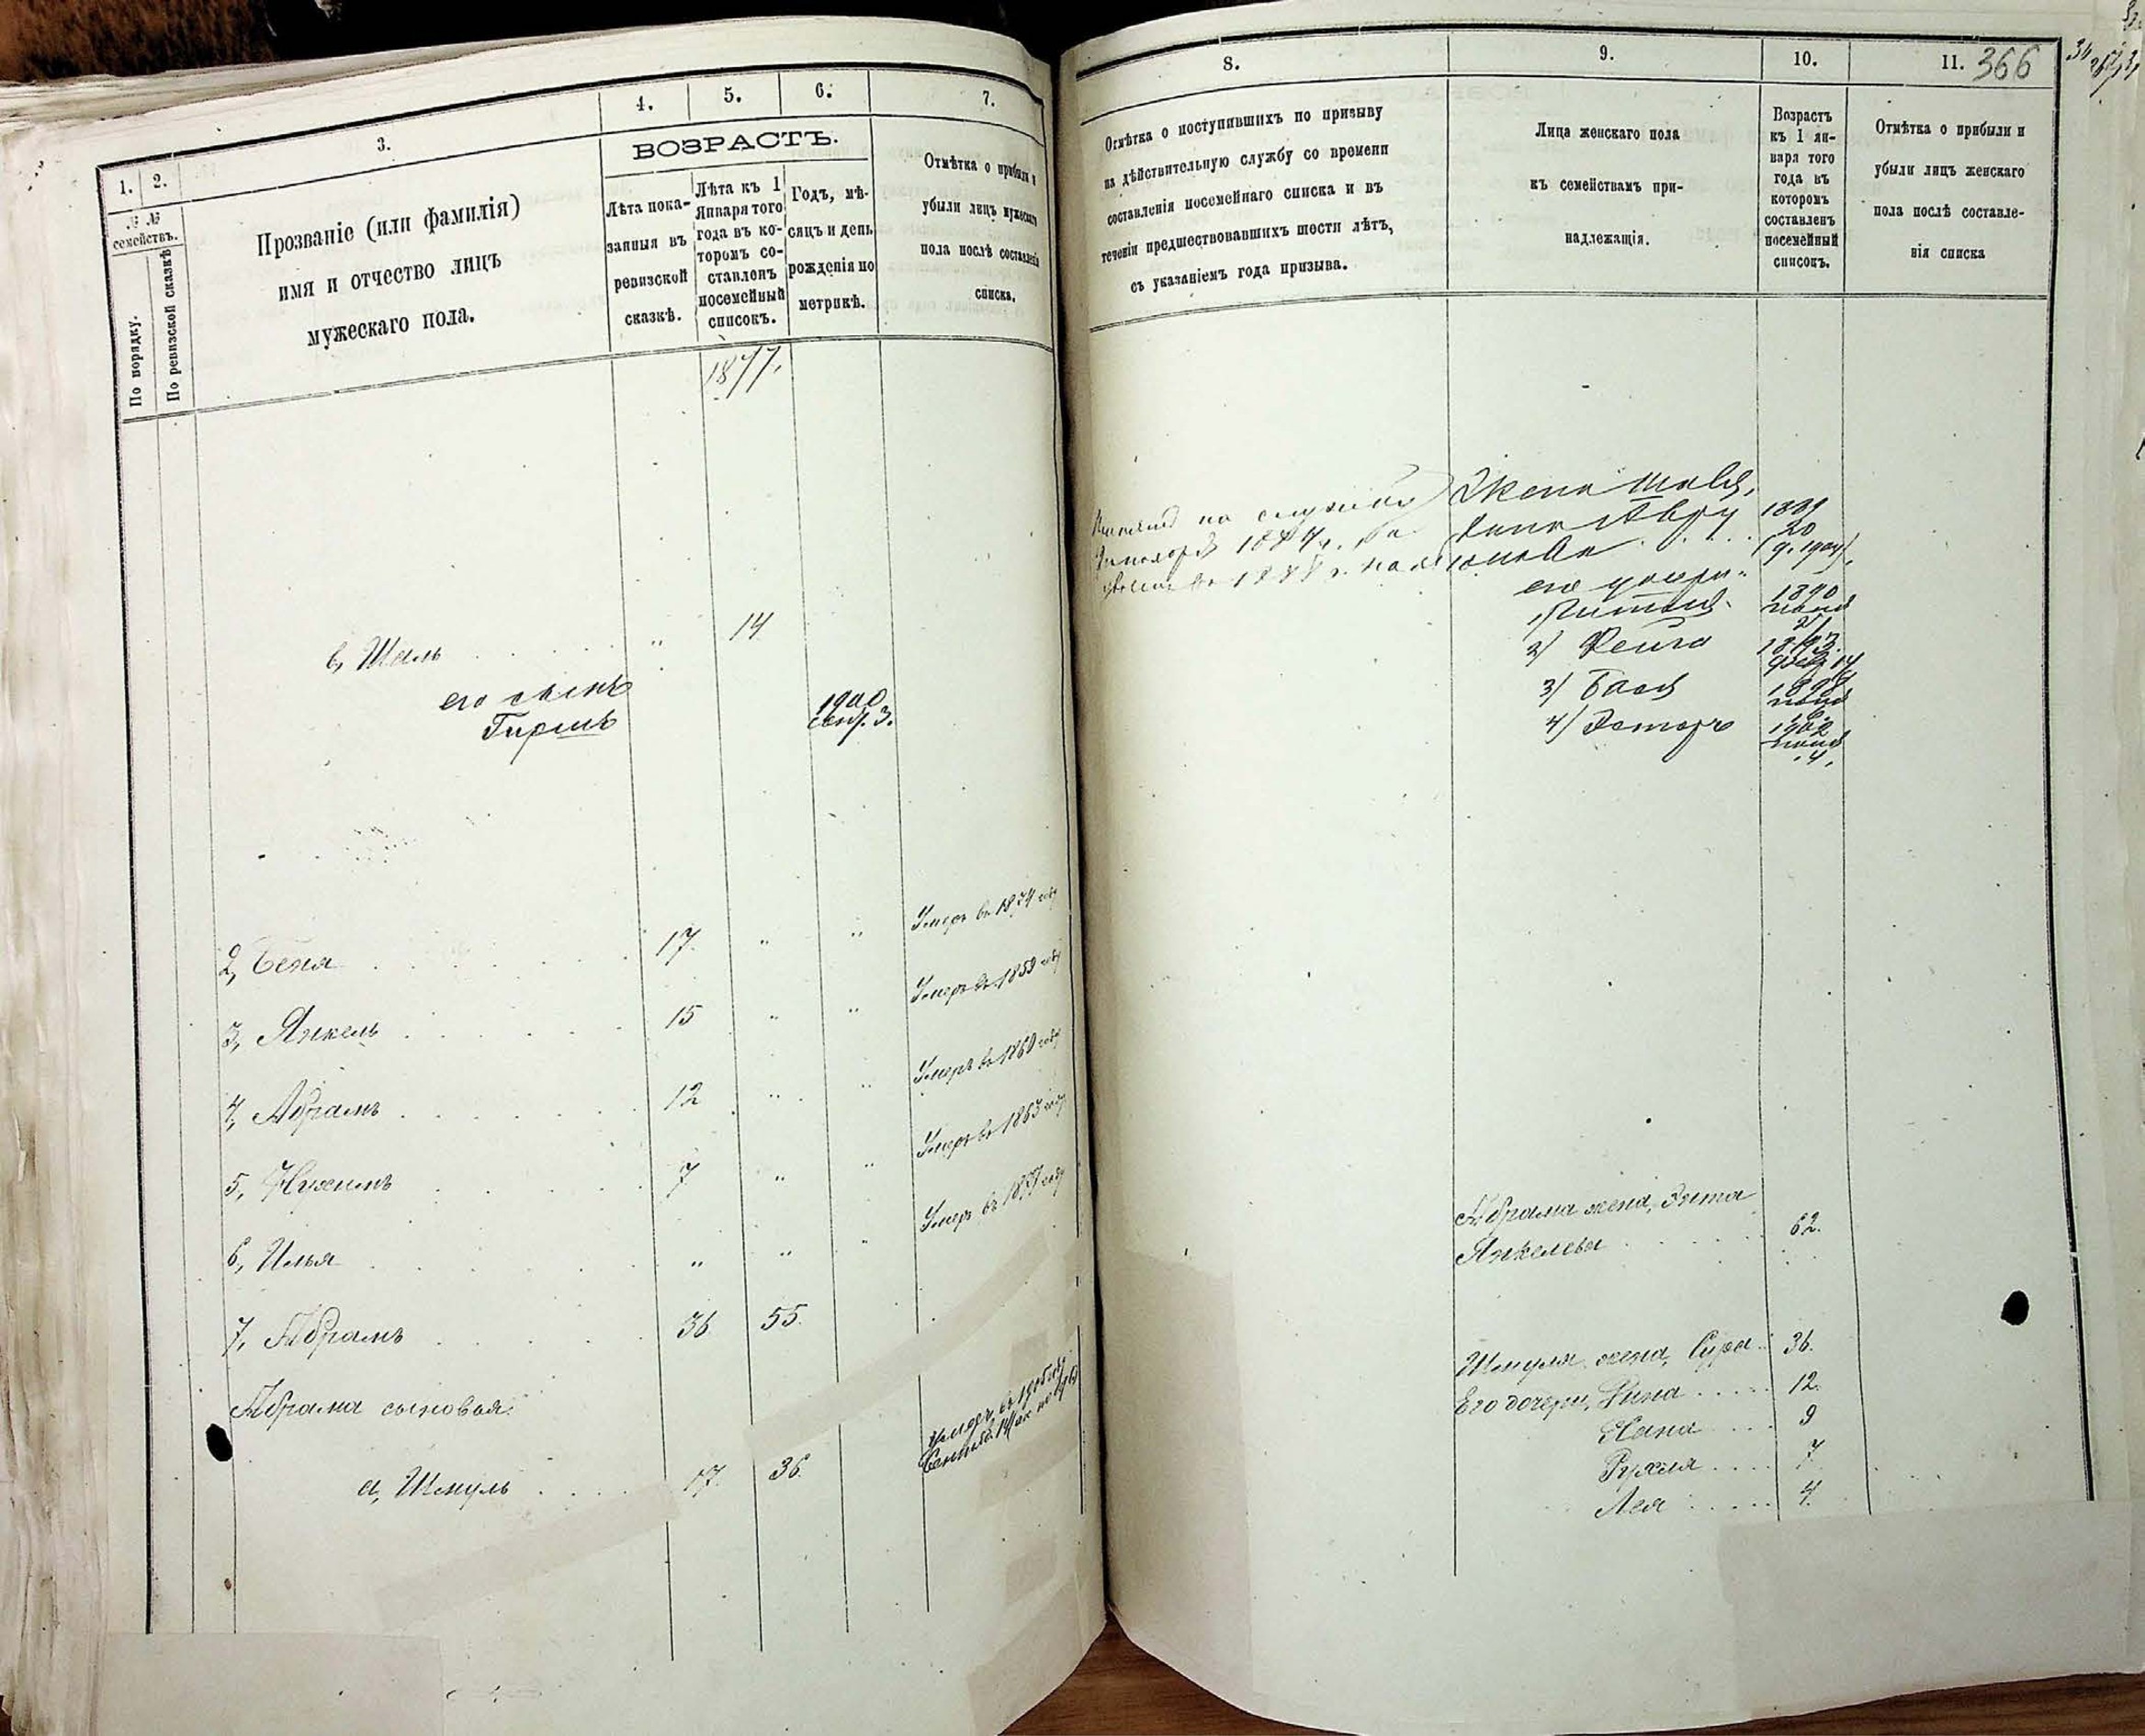 1.
2.
3.
4.
5.
6.
7.
№ №
семействъ.
По порядку.
По ревизской сказкѣ
Прозваніе (или фамилія)
имя и отчество лицъ
мужескаго пола.
ВОЗРАСТЪ.
Лѣта пока-
занныя въ
ревизской
сказкѣ.
Лѣта къ 1
Января того
года въ ко-
торомъ со-
ставленъ
посемейный
списокъ.
Годъ, мѣ-
сяцъ и день
рожденія по
метрикѣ.
Отмѣтка о прибыли и
убыли лицъ мужескаго
пола послѣ составленія
списка.
1877.
в, Шаль 14
его сынъ
Гиршъ
1900
сент. 3.
2, Беня 17.
Умеръ въ 1874 году
3, Янкель 15
Умеръ въ 1859 году
4, Абрамъ 12
Умеръ въ 1860 году
5, Нухимъ 7
Умеръ въ 1863 году
6, Илья
Умеръ въ 1857 году
7, Абрамъ 36 55.
Абрама сыновья:
а, Шмуль 17. 36.
8.
9.
10.
11. 366
Отмѣтка о поступившихъ по призыву
на дѣйствительную службу со времени
составленія посемейнаго списка и въ
теченіи предшествовавшихъ шести лѣтъ,
съ указаніемъ года призыва.
Лица женскаго пола
къ семействамъ при-
надлежащія.
Возрастъ
къ 1 ян-
варя того
года въ
которомъ
составленъ
посемейный
списокъ.
Отмѣтка о прибыли и
убыли лицъ женскаго
пола послѣ составле-
нія списка
на службу
Жена Шаля,
1889
20
его дочери
1890
2/ Фейга
1893
3/ Бася
4/ Эстеръ
1902
4.
Абрама жена, Энта
Янкелева 62.
Шмуля жена, Сура 36.
Его дочери, Рина 12.
Хана 9
Рухля 7
Лея 4.